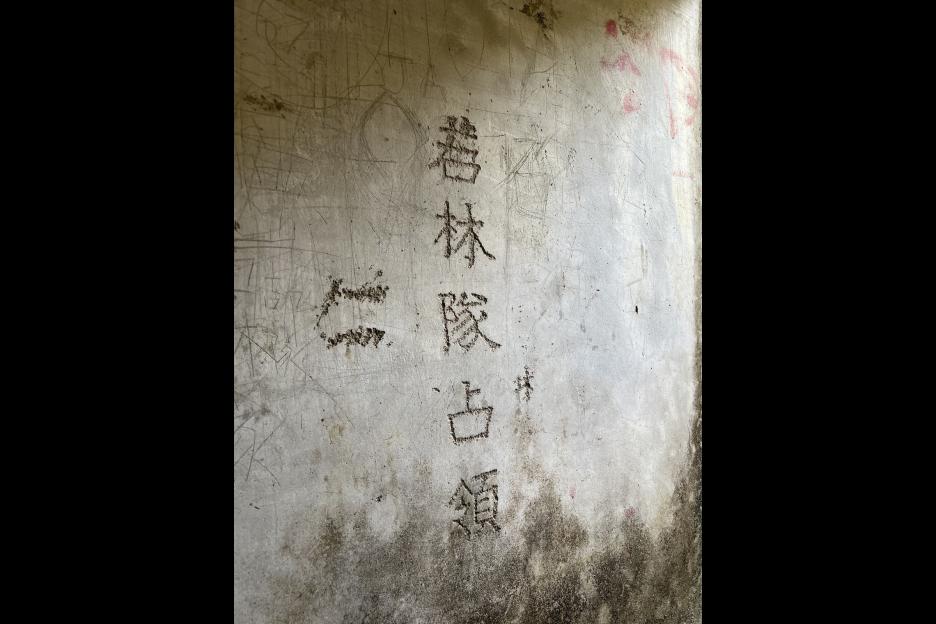 若林隊占領